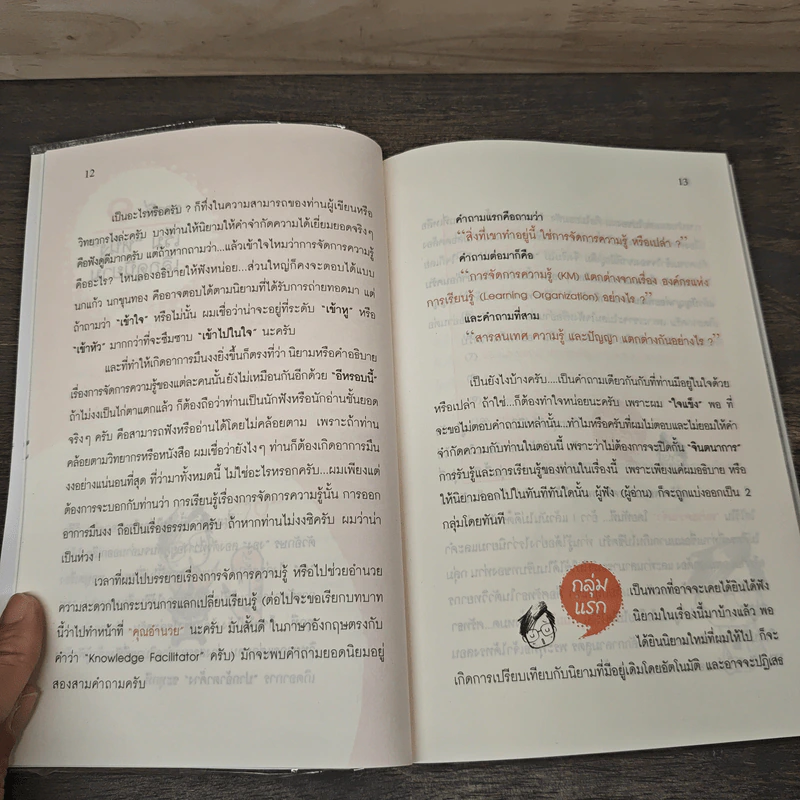 12
เป็นอะไรหรือครับ ? ก็ทึ่งในความสามารถของท่านผู้เขียนหรือ
วิทยากรไงล่ะครับ บางท่านให้นิยามให้คำจำกัดความได้เยี่ยมยอดจริงๆ
คือฟังดูดีมากครับ แต่ถ้าหากถามว่า...แล้วเข้าใจไหมว่าการจัดการความรู้
คืออะไร? ไหนลองอธิบายให้ฟังหน่อย...ส่วนใหญ่ก็คงจะตอบได้แบบ
นกแก้ว นกขุนทอง คืออาจตอบได้ตามนิยามที่ได้รับการถ่ายทอดมา แต่
ถ้าถามว่า "เข้าใจ" หรือไม่นั้น ผมเชื่อว่าน่าจะอยู่ที่ระดับ "เข้าหู" หรือ
"เข้าหัว" มากกว่าที่จะซึมซาบ "เข้าไปในใจ" นะครับ
และที่ทำให้เกิดอาการมึนงงยิ่งขึ้นก็ตรงที่ว่า นิยามหรือคำอธิบาย
เรื่องการจัดการความรู้ของแต่ละคนนั้นยังไม่เหมือนกันอีกด้วย "อีหรอบนี้"
ถ้าไม่งงเป็นไก่ตาแตกแล้ว ก็ต้องถือว่าท่านเป็นนักฟังหรือนักอ่านชั้นยอด
จริงๆ ครับ คือสามารถฟังหรืออ่านได้โดยไม่คล้อยตาม เพราะถ้าท่าน
คล้อยตามวิทยากรหรือหนังสือ ผมเชื่อว่ายังไงๆ ท่านก็ต้องเกิดอาการมึน
งงอย่างแน่นอนที่สุด ที่ว่ามาทั้งหมดนี้ ไม่ใช่อะไรหรอกครับ...ผมเพียงแต่
ต้องการจะบอกกับท่านว่า การเรียนรู้เรื่องการจัดการความรู้นั้น การออก
อาการมึนงง ถือเป็นเรื่องธรรมดาครับ ถ้าหากท่านไม่งงซิครับ ผมว่าน่า
เป็นห่วง !
เวลาที่ผมไปบรรยายเรื่องการจัดการความรู้ หรือไปช่วยอำนวย
ความสะดวกในกระบวนการแลกเปลี่ยนเรียนรู้ (ต่อไปจะขอเรียกบทบาท
นี้ว่าไปทำหน้าที่ "คุณอำนวย" นะครับ มันสั้นดี ในภาษาอังกฤษตรงกับ
คำว่า "Knowledge Facilitator" ครับ) มักจะพบคำถามยอดนิยมอยู่
สองสามคำถามครับ
13
คำถามแรกคือถามว่า
"สิ่งที่เขาทำอยู่นี้ ใช่การจัดการความรู้ หรือเปล่า ?"
คำถามต่อมาก็คือ
"การจัดการความรู้ (KM) แตกต่างจากเรื่อง องค์กรแห่ง
การเรียนรู้ (Learning Organization) อย่างไร ?"
และคำถามที่สาม
"สารสนเทศ ความรู้ และปัญญา แตกต่างกันอย่างไร ?"
เป็นยังไงบ้างครับ....เป็นคำถามเดียวกันกับที่ท่านมีอยู่ในใจด้วย
หรือเปล่า ถ้าใช่...ก็ต้องทำใจหน่อยนะครับ เพราะผม "ใจแข็ง" พอ ที่
จะขอไม่ตอบคำถามเหล่านั้น...ทำไมหรือครับที่ผมไม่ตอบและไม่ยอมให้คำ
จำกัดความกับท่านในตอนนี้ เพราะว่าไม่ต้องการจะปิดกั้น "จินตนาการ"
การรับรู้และการเรียนรู้ของท่านในเรื่องนี้ เพราะเพียงแค่ผมอธิบาย หรือ
ให้นิยามออกไปในทันทีทันใดนั้น ผู้ฟัง (ผู้อ่าน) ก็จะถูกแบ่งออกเป็น 2
กลุ่มโดยทันที
กลุ่ม
แรก
เป็นพวกที่อาจจะเคยได้ยินได้ฟัง
นิยามในเรื่องนี้มาบ้างแล้ว พอ
ได้ยินนิยามใหม่ที่ผมให้ไป ก็จะ
เกิดการเปรียบเทียบกับนิยามที่มีอยู่เดิมโดยอัตโนมัติ และอาจจะปฏิเสธ